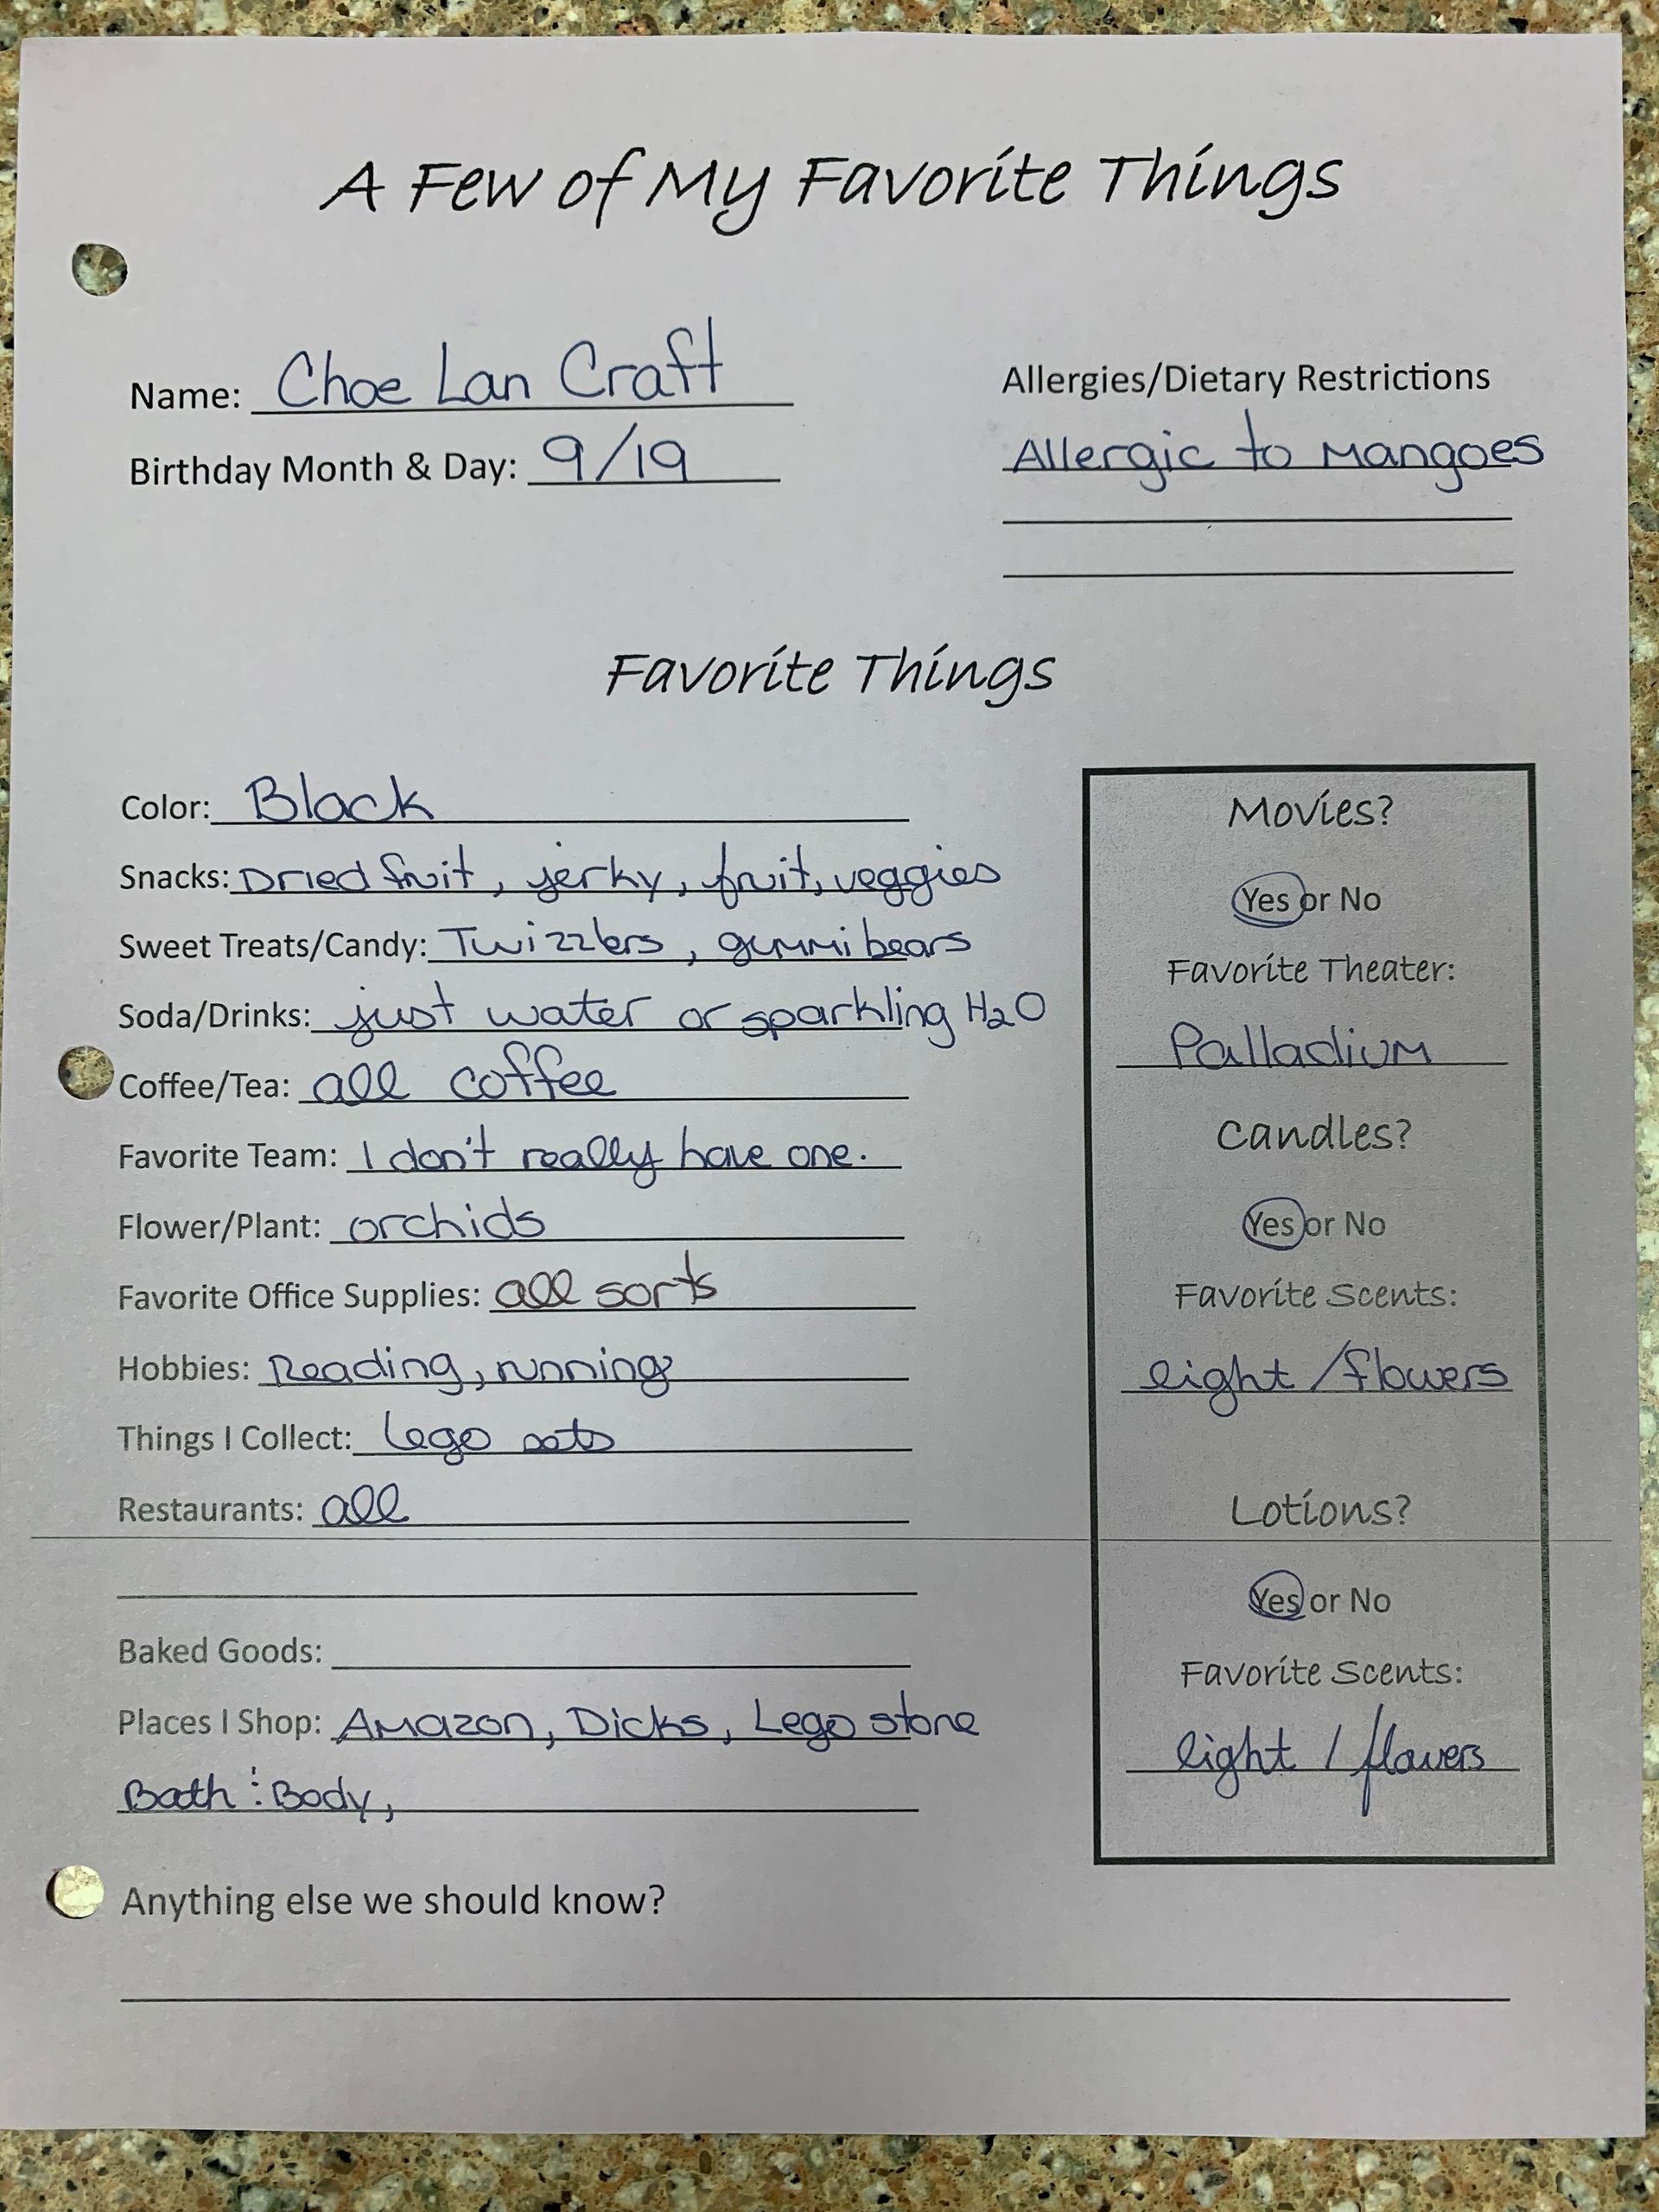 A Few of My Favorite Things
Name: Choe Lan Craft
Birthday Month & Day: 9/19
Allergies/Dietary Restrictions
Allergic to Mangoes
Favorite Things
Color: Black
Snacks: Dried fruit, jerky, fruit, veggies
Sweet Treats/Candy: Twizzlers, gummi bears
Soda/Drinks: just water or sparkling H2O
Coffee/Tea: all coffee
Favorite Team: I don't really have one.
Flower/Plant: orchids
Favorite Office Supplies: all sorts
Hobbies: Reading, running
Things I Collect: Lego sets
Restaurants: all
Baked Goods:
Places I Shop: Amazon, Dicks, Lego store
Bath & Body,
Movies?
Yes or No
Favorite Theater:
Palladium
Candles?
Yes or No
Favorite Scents:
light / flowers
Lotions?
Yes or No
Favorite Scents:
light / flowers
Anything else we should know?